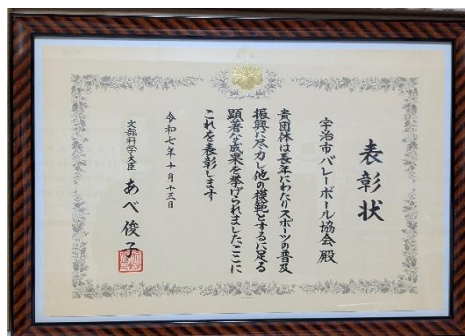 表彰状
宇治市バレーボール協会 殿
貴団体は長年にわたりスポーツの普及
振興に尽力し他の模範とするに足る
顕著な成果を挙げられましたここに
これを表彰します
令和七年十月十三日
文部科学大臣 あべ俊子